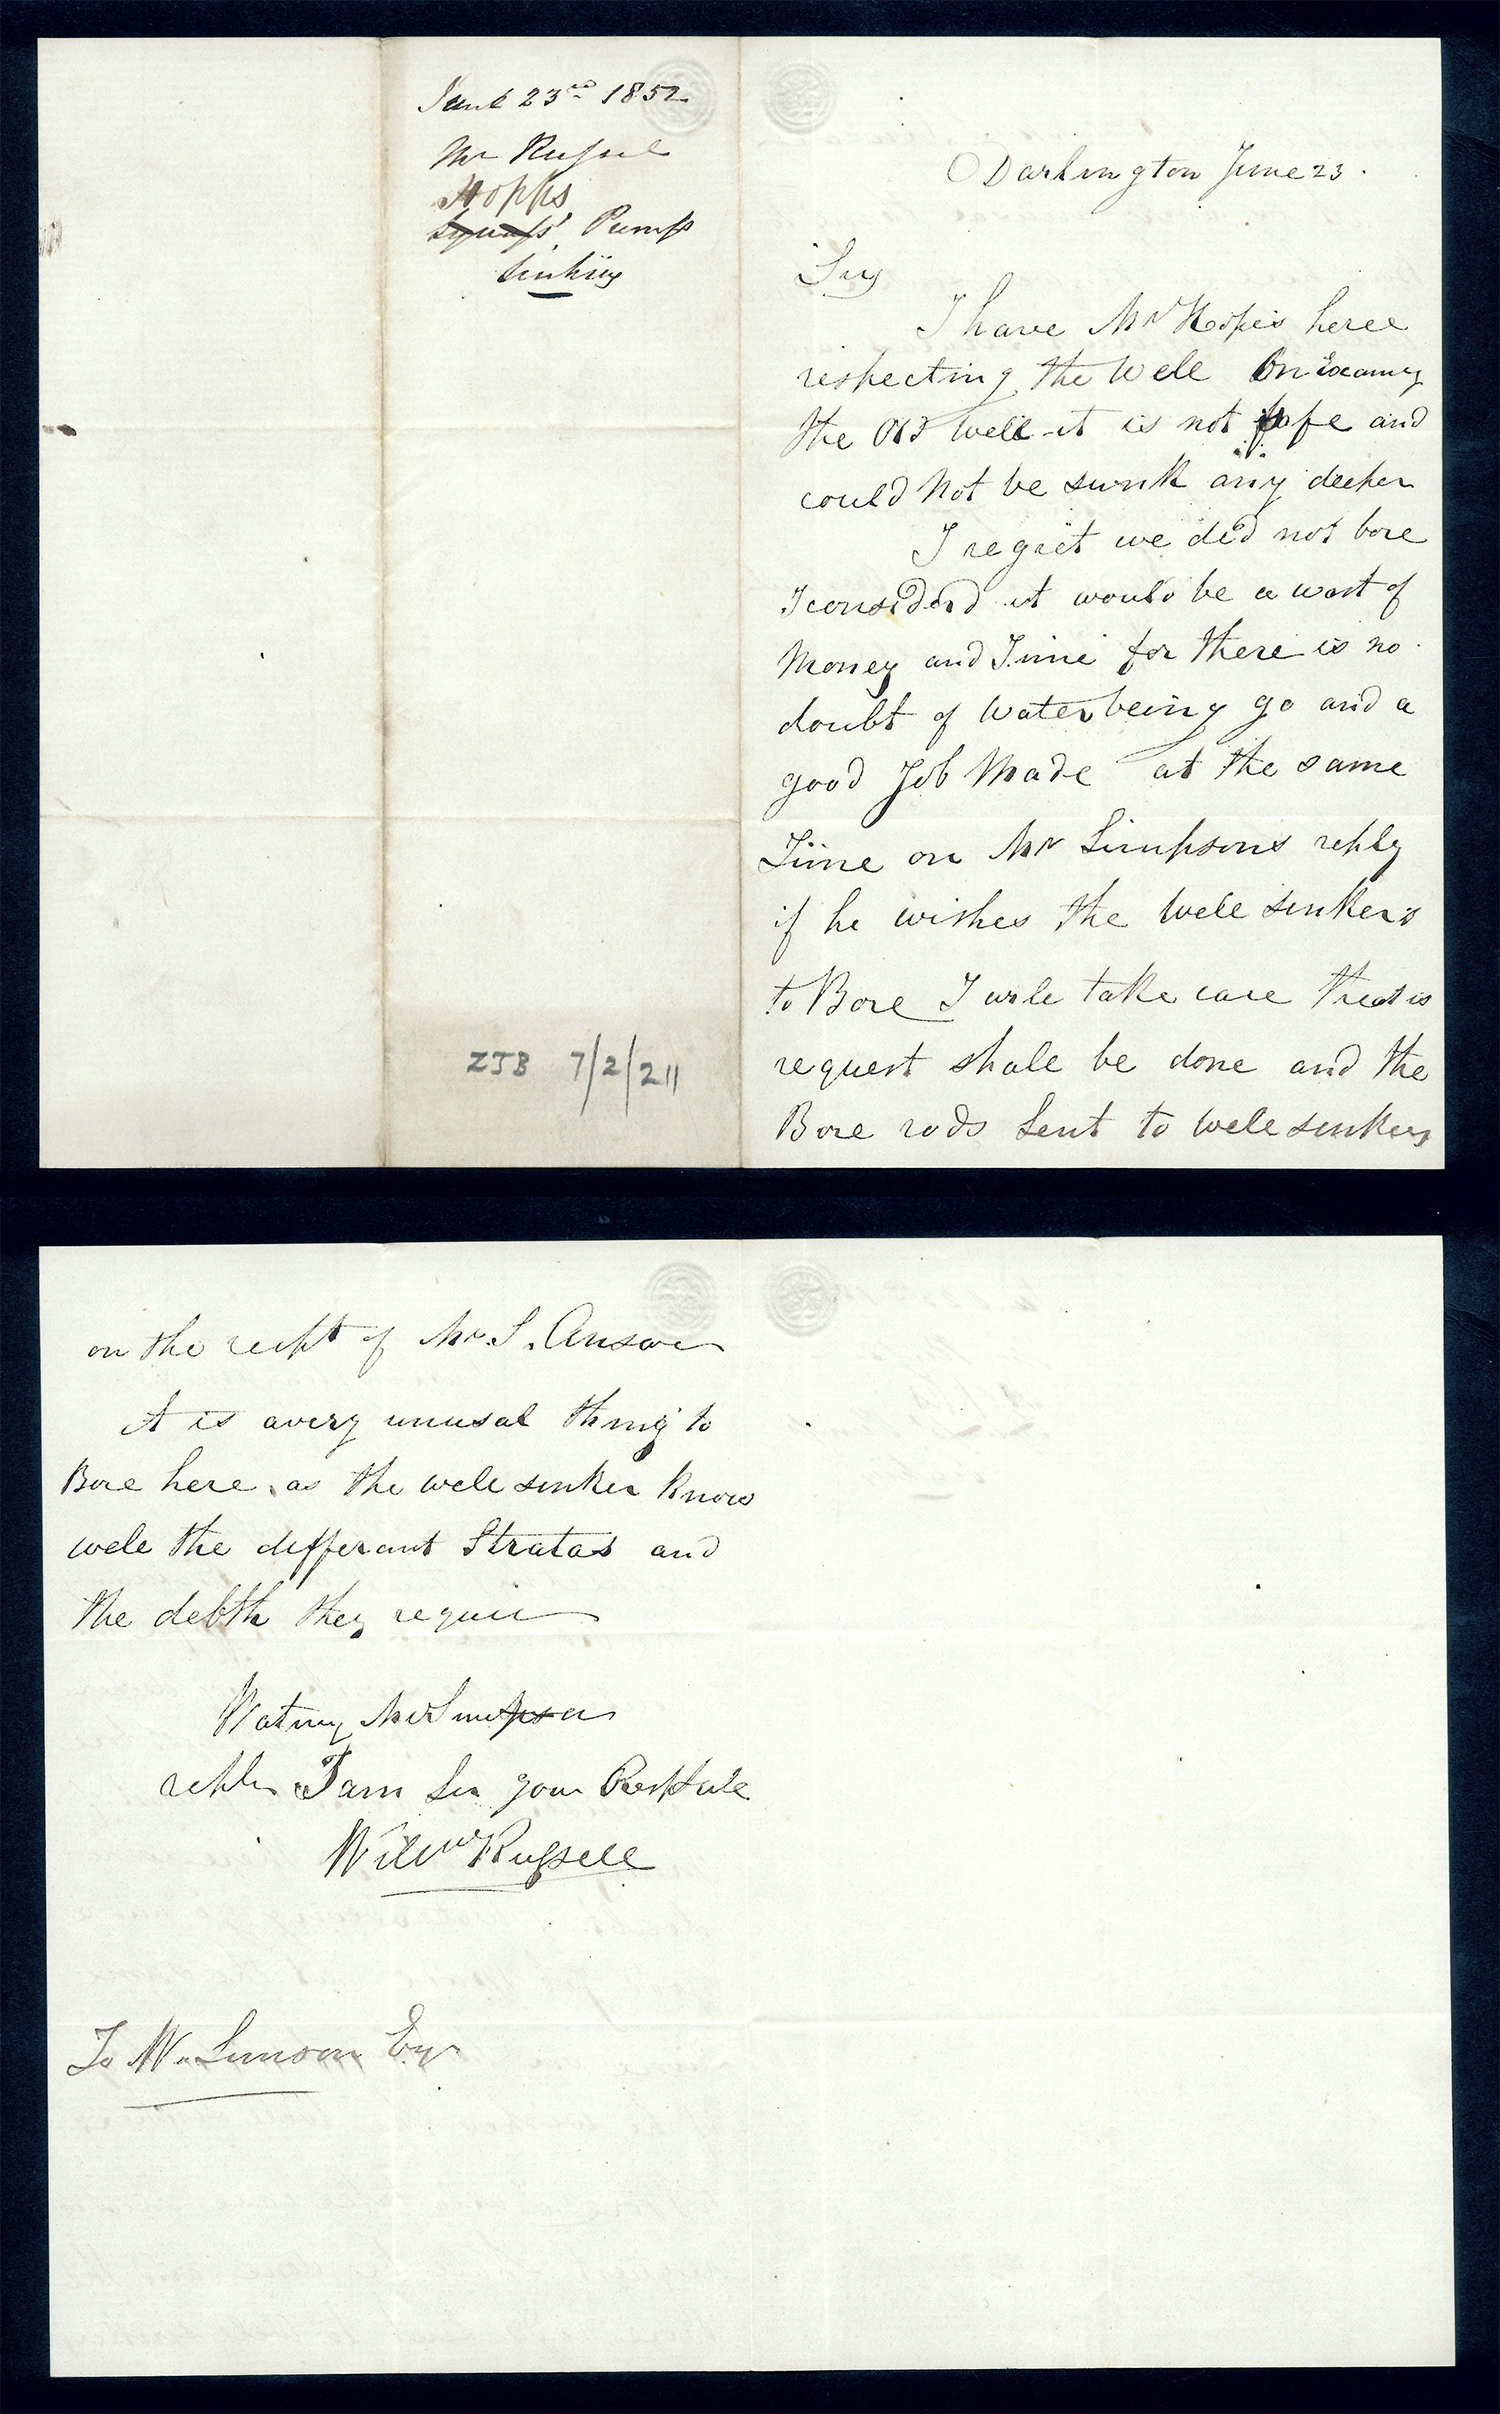 June 23rd 1852
Mr Russel
Hopps
Pump
Sinking
ZJB 7/2/211
Darlington June 23.
Sir
I have Mr Hopes here
respecting the Well On Examing
the Old Well it is not safe and
could Not be sunk any deeper
I regret we did not bore
I considerd it would be a wast of
Money and Time for there is no
doubt of Water being go and a
good Job Made at the same
Time on Mr Simpsons reply
if he wishes the Well sinkers
to Bore I will take care
request shall be done and the
Bore rods Sent to Well sinkers
on the recipt of Mr. S. Answer
it is a very unusal thing to
Bore here as the well sinker Know
well the differant Stratas and
the debth they require
Wating Mr Simpson
reply I am Sir your
Willm Russell
To W. Simson Esqr